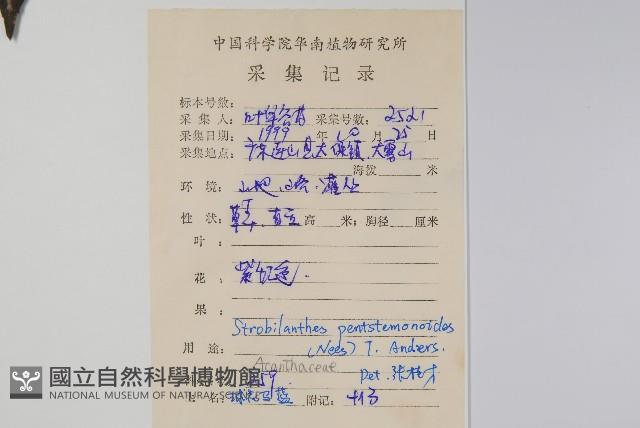 中国科学院华南植物研究所
采集记录
标本号数:
采集人: 叶华谷 采集号数: 2521
采集日期: 1999 年 10 月 25 日
采集地点: 广东连山县太保镇.大雾山
海拨 米
环境: 山地.路.灌丛
性状: 草本.直立 高 米; 胸径 厘米
叶:
花: 紫红色.
果:
Strobilanthes pentstemonoides
用途: (Nees) T. Anders.
Acanthaceae
259 Det.
名: 球花马蓝 附记: 十份
國立自然科學博物館
NATIONAL MUSEUM OF NATURAL SCIENCE